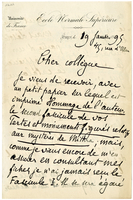 Université de France
École Normale Supérieure
19 janvier 95
45, rue d'Ulm
Cher collègue
Je viens de recevoir, avec
un petit papier sur lequel est
imprimé Hommage de l'auteur
le second fascicule de vos
Textes et monuments figurés relatifs
aux mystères de Mithra, mais,
comme je veux encore de m'en
assurer en consultant mes
fiches, je n'ai jamais reçu le
fascicule I. Il me